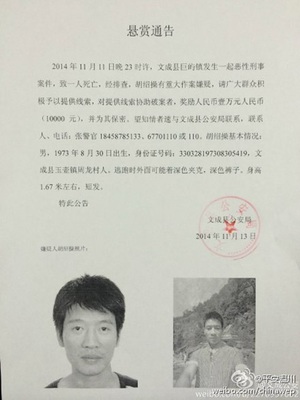 悬赏通告
2014 年 11 月 11 日晚 23 时许，文成县巨屿镇发生一起恶性刑事
案件，致一人死亡，经排查，胡绍操有重大作案嫌疑，请广大群众积
极予以提供线索，对提供线索协助破案者，奖励人民币壹万元人民币
（10000 元），并为其保密。望知情者速与文成县公安局联系，联系
人、电话：张警官 18458785133、67701110 或 110，胡绍操基本情况：
男，1973 年 8 月 30 日出生，身份证号码：330328197308305419，
文成县玉壶镇周龙村人。逃跑时外面可能着深色夹克，深色裤子，身高
1.67 米左右，短发。
特此公告
文成县公安局
2014 年 11 月 13 日
嫌疑人胡绍操照片：
weibo.com/chinawep